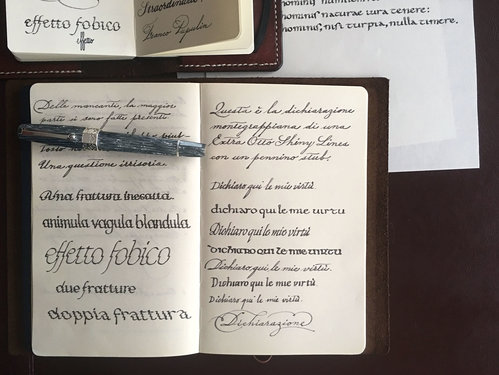 effetto fobico
effetto
Straordinario
Franco Papulin
hominis naturae iura tenere:
hominis, nisi turpia, nulla timere.
Delle mancanti, la maggior
parte si sono fatte presenti
Una questione irrisoria.
Una frattura inesatta
animula vagula blandula
effetto fobico
due fratture
doppia frattura
Questa è la dichiarazione
montegrappiana di una
Extra Otto Shiny Lines
con un pennino stub.
Dichiaro qui le mie virtù
dichiaro qui le mie virtu
Dichiaro qui le mie virtù
dichiaro qui le mie virtu
Dichiaro, qui, le mie virtù.
Dichiaro qui le mie virtù
Dichiaro qui le mie virtù.
Dichiarazione